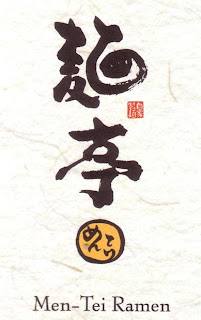 麺亭
めん
てい
Men-Tei Ramen